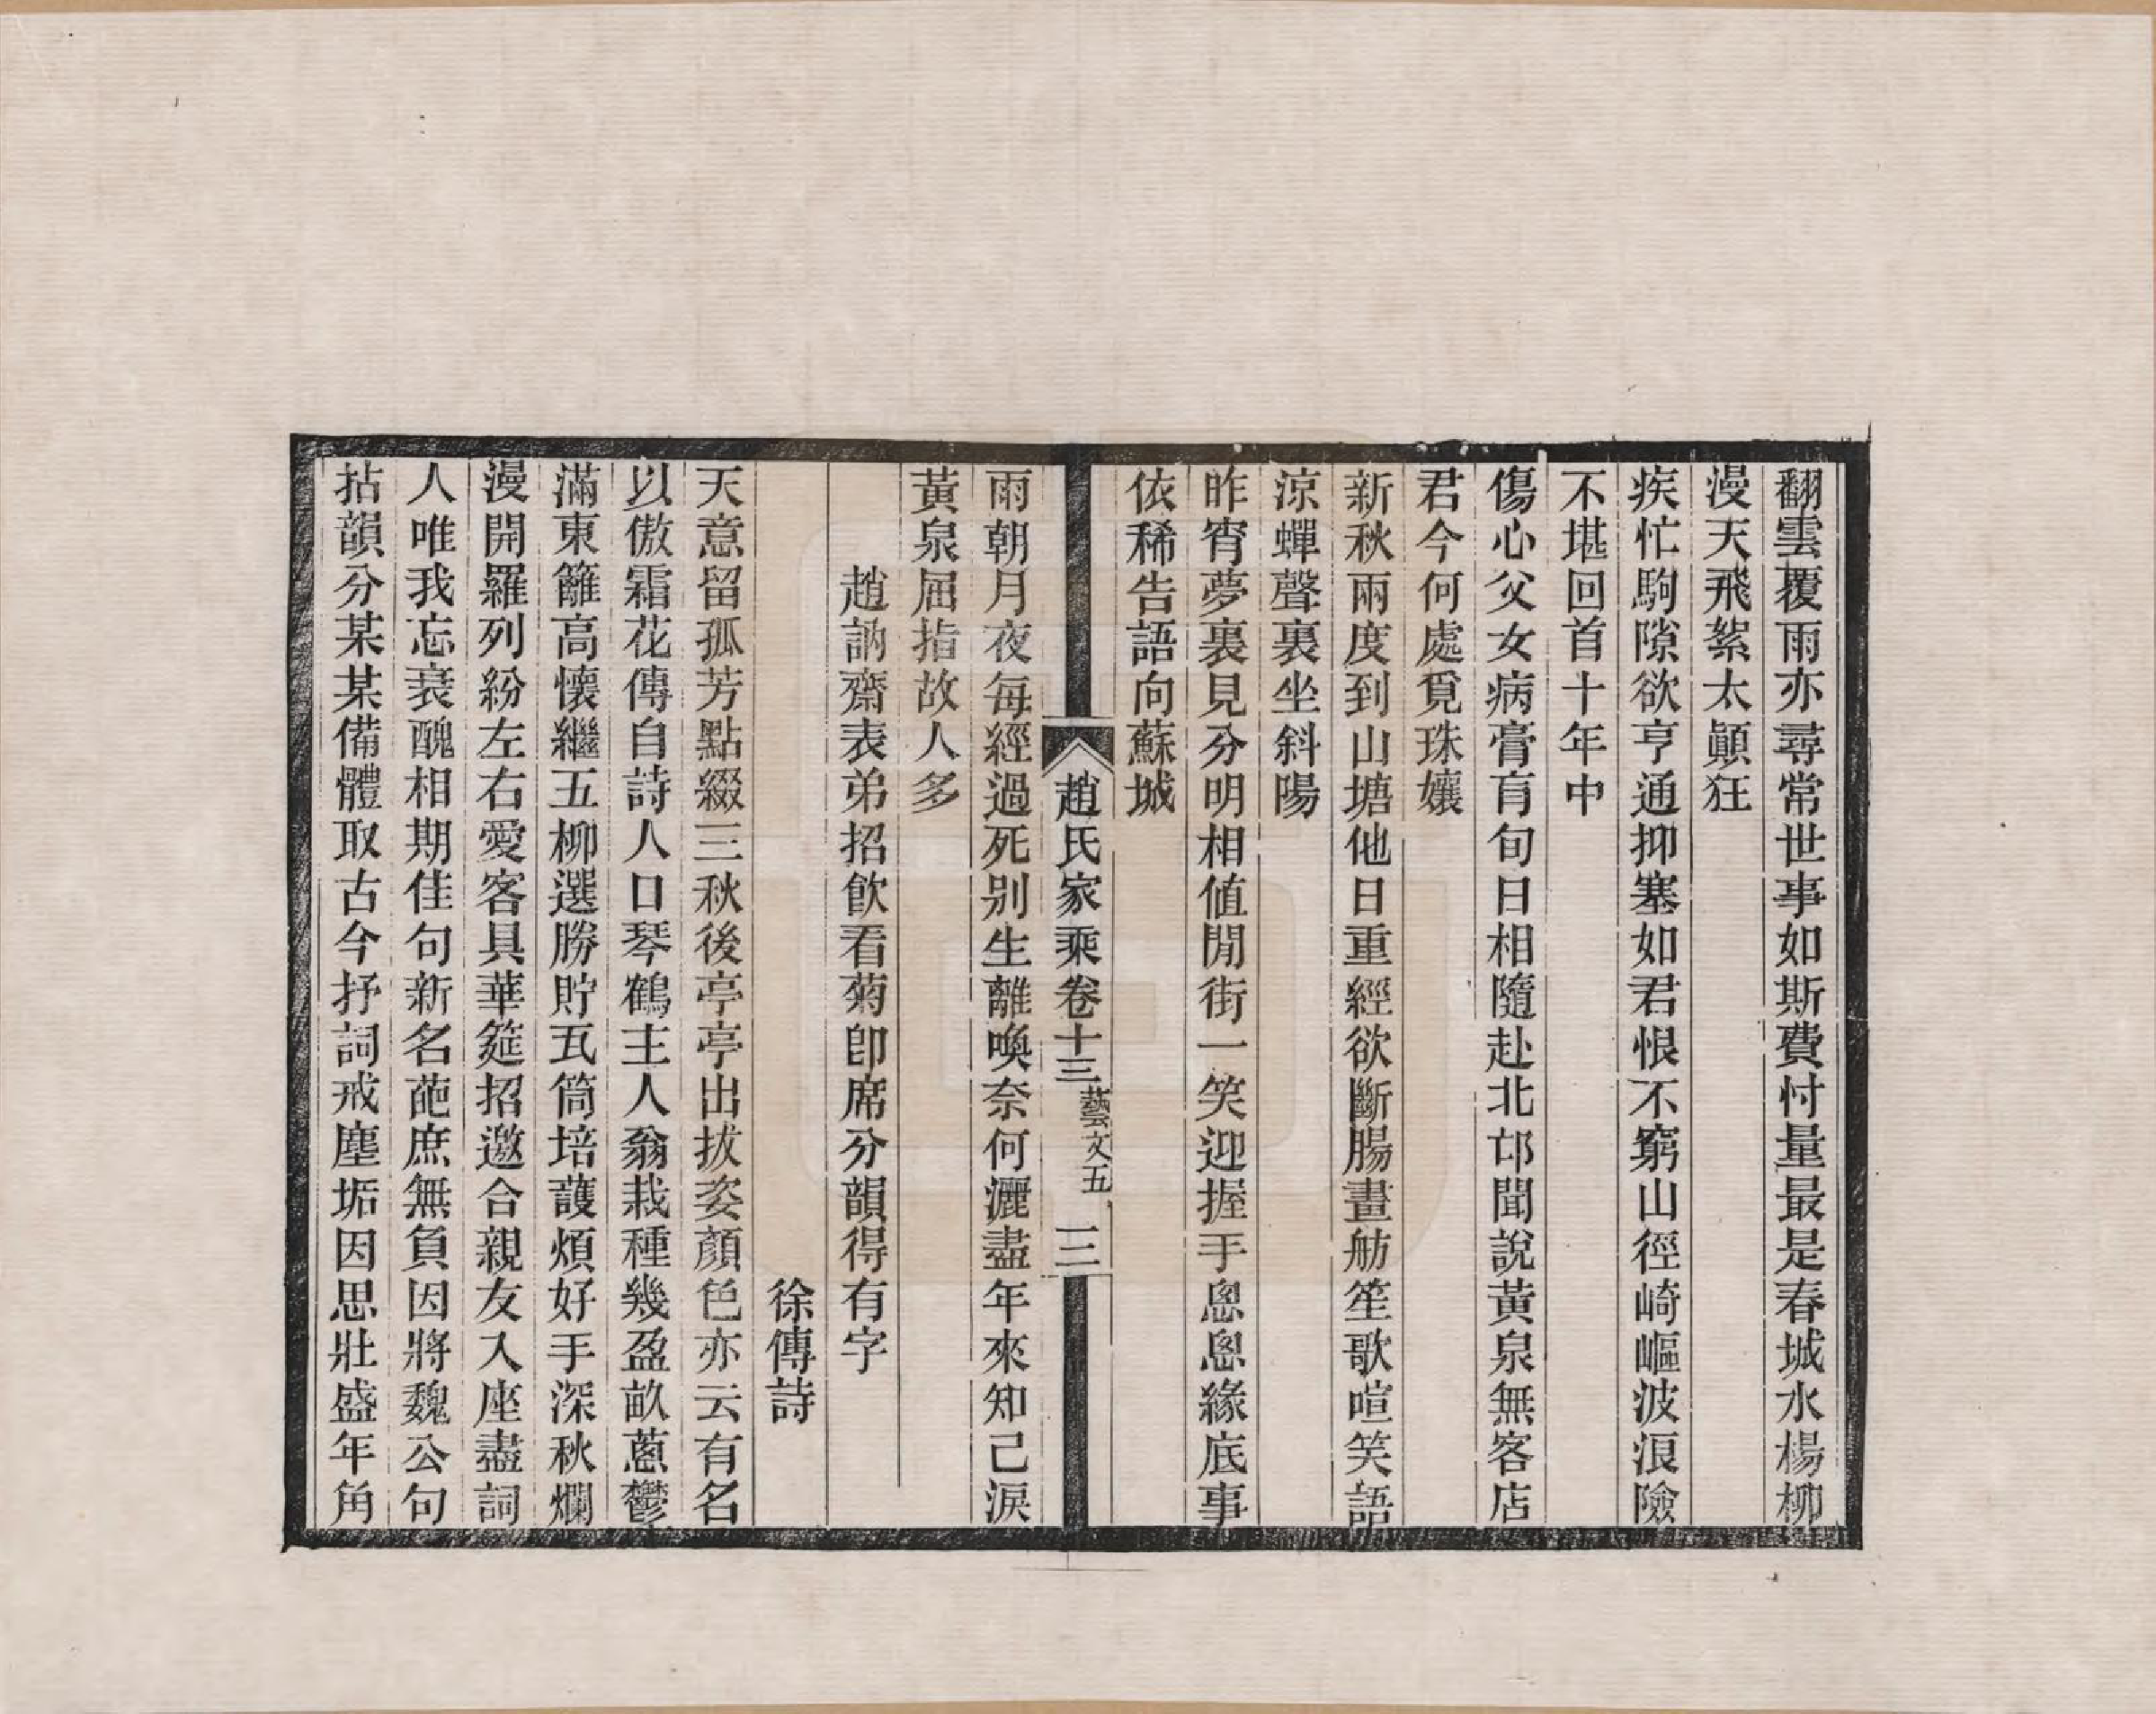 翻雲覆雨亦尋常世事如斯費忖量最是春城水楊柳
漫天飛絮太顚狂
疾忙駒隙欲亨通抑塞如君恨不窮山徑崎嶇波浪險
不堪回首十年中
傷心父女病膏肓旬日相隨赴北邙聞說黃泉無客店
君今何處覓珠孃
新秋兩度到山塘他日重經欲斷腸畫舫笙歌喧笑語
涼蟬聲裏坐斜陽
昨宵夢裏見分明相値閒街一笑迎握手悤悤緣底事
依稀告語向蘇城
趙氏家乘卷十三 藝文五 三
雨朝月夜每經過死别生離喚奈何灑盡年來知己淚
黃泉屈指故人多
趙訥齋表弟招飮看菊卽席分韻得有字
徐傳詩
天意留孤芳點綴三秋後亭亭出拔姿顏色亦云有名
以傲霜花傳自詩人口琴鶴主人翁栽種幾盈畝蔥鬱
滿東籬高懷繼五柳選勝貯瓦筒培護煩好手深秋爛
漫開羅列紛左右愛客具華筵招邀合親友入座盡詞
人唯我忘衰醜相期佳句新名葩庶無負因將魏公句
拈韻分某某備體取古今抒詞戒塵垢因思壯盛年角